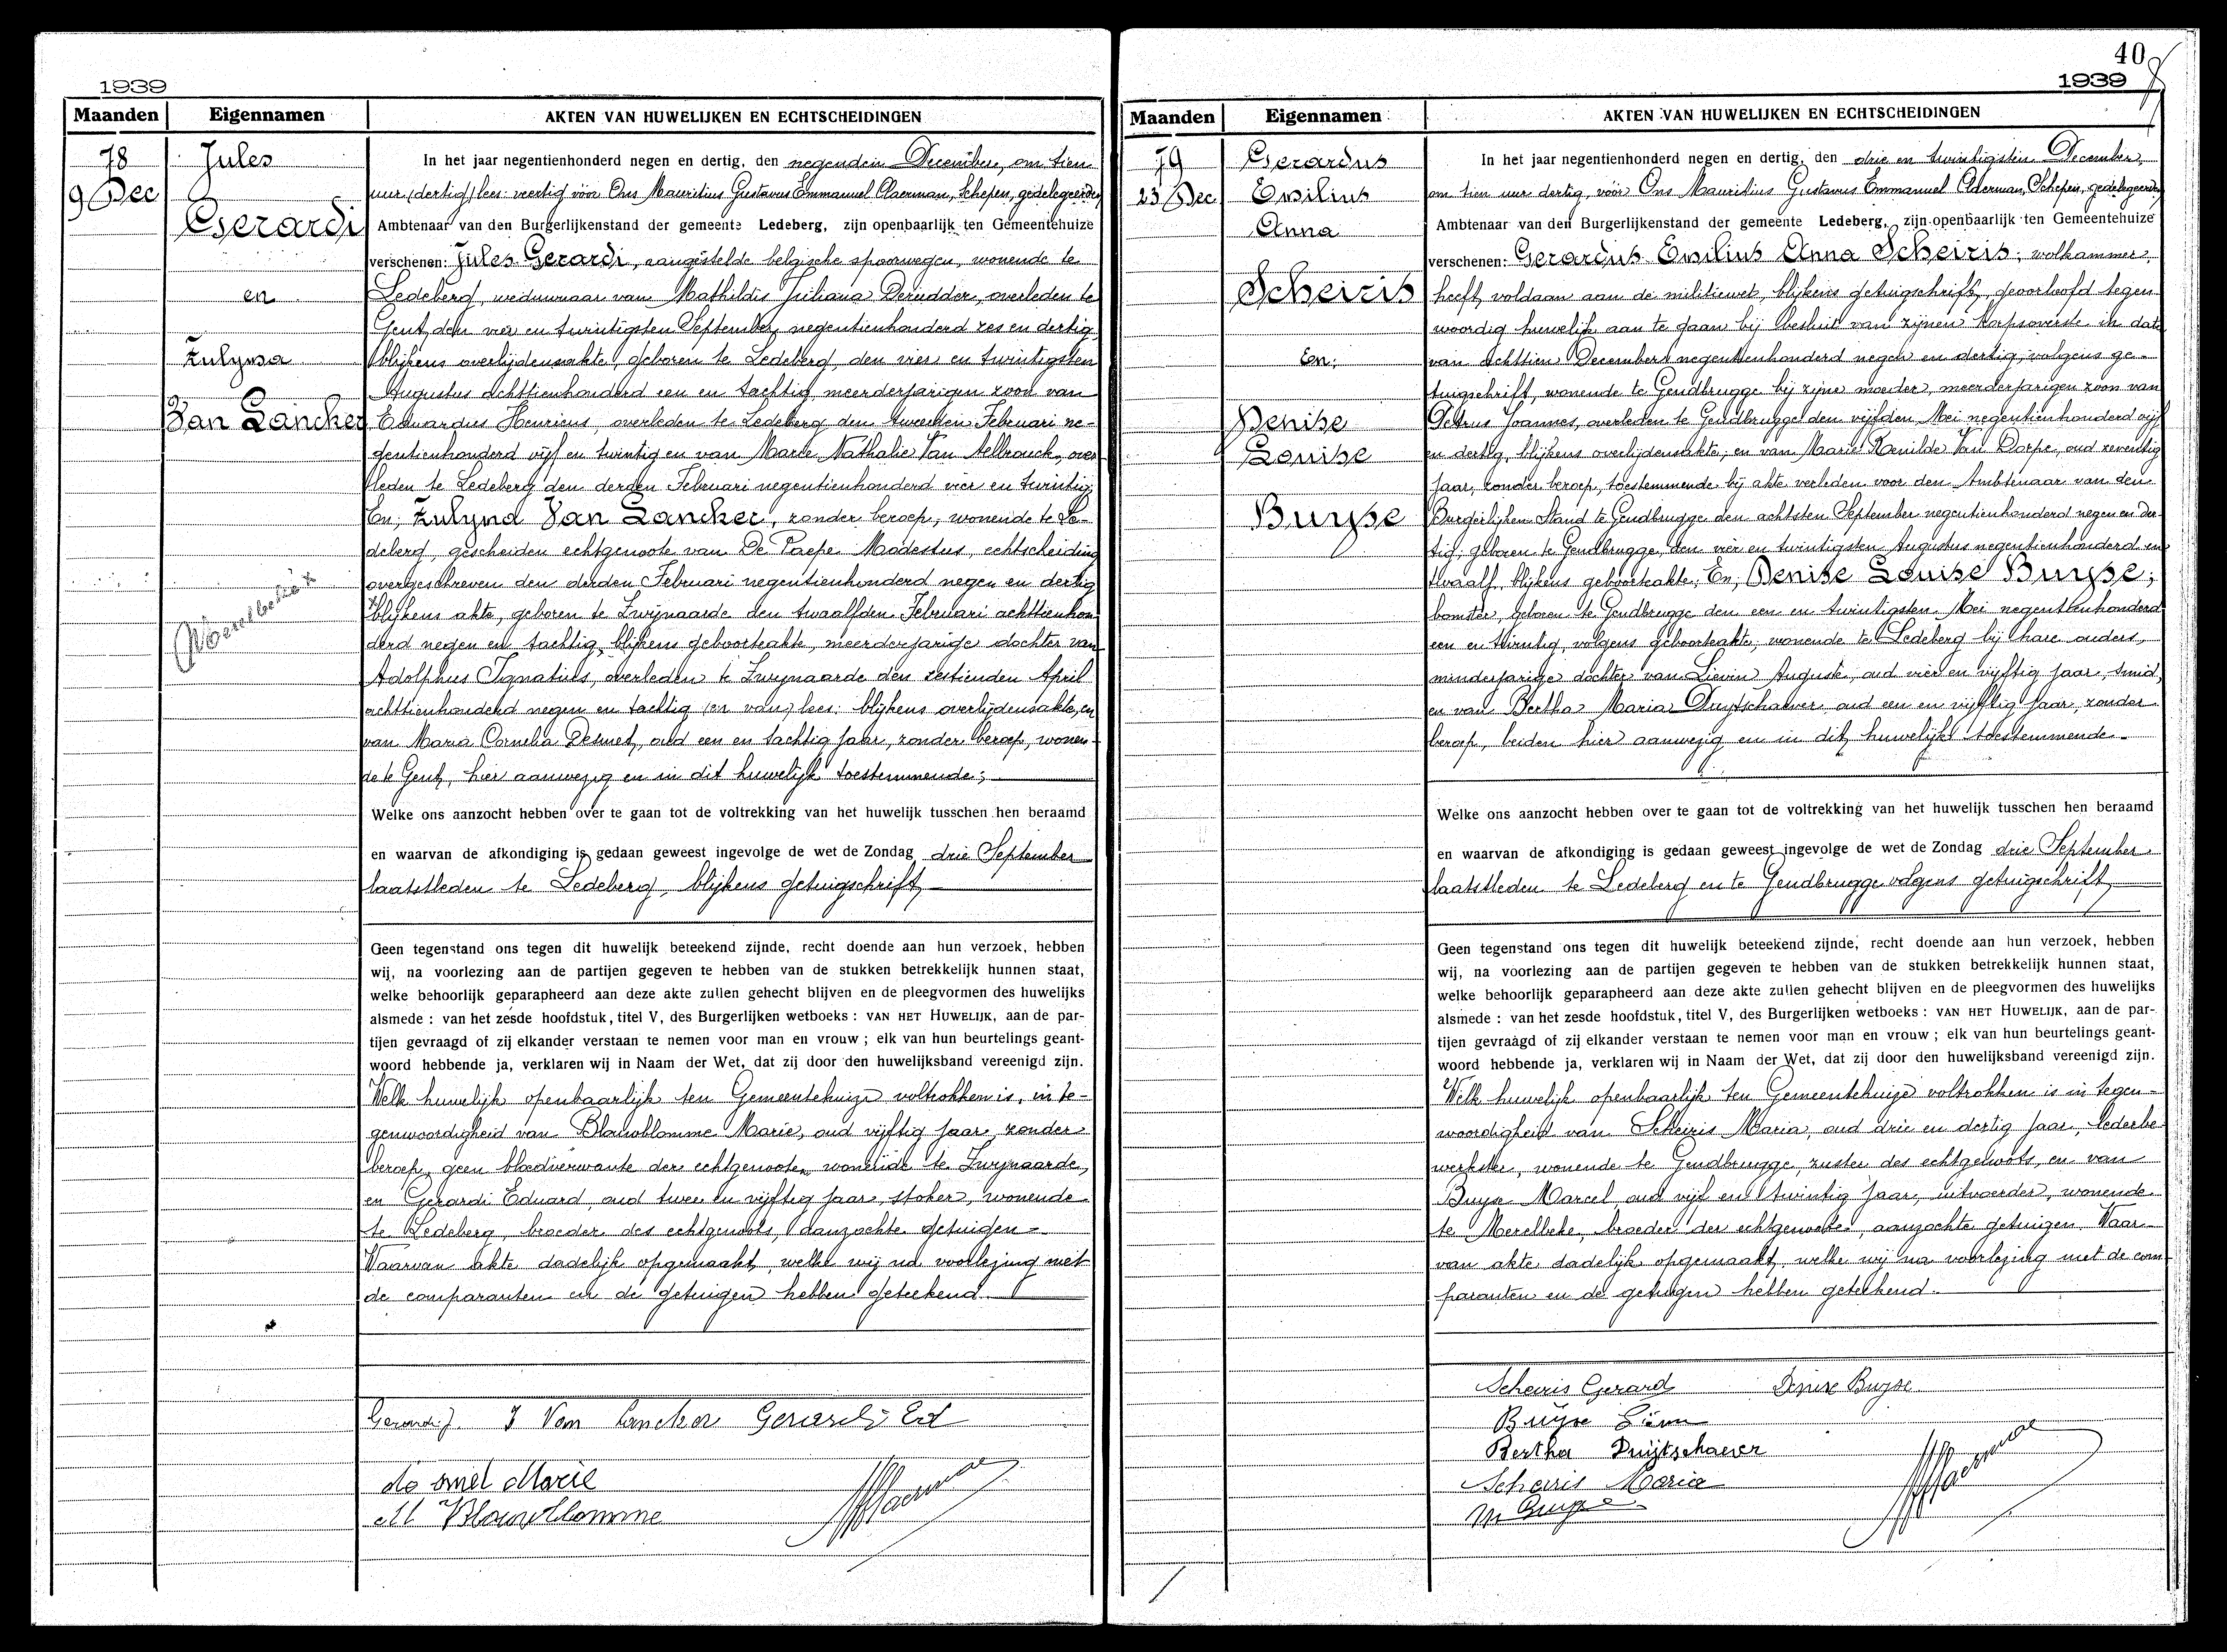 1939
Maanden Eigennamen AKTEN VAN HUWELIJKEN EN ECHTSCHEIDINGEN
78
9 Dec
Jules
Gerardi
en
Zulyma
Van Lancker
In het jaar negentienhonderd negen en dertig, den negenden December, om tien
uur (dertig) lees: veertig vóór Ons Mauritius Gustavus Emmanuel Claerman, Schepen, gedelegeerde,
Ambtenaar van den Burgerlijkenstand der gemeente Ledeberg, zijn openbaarlijk ten Gemeentehuize
verschenen: Jules Gerardi, aangestelde belgische spoorwegen, wonende te
Ledeberg, weduwnaar van Mathildis Juliana Derudder, overleden te
Gent, den vier en twintigsten September negentienhonderd zes en dertig,
blijkens overlijdensakte, geboren te Ledeberg, den vier en twintigsten
Augustus achttienhonderd een en tachtig, meerderjarigen zoon van
Eduardus Henricus, overleden te Ledeberg den tweeden Februari ne-
gentienhonderd vijf en twintig en van Marie Nathalie Van Aelbrouck, over
leden te Ledeberg den derden Februari negentienhonderd vier en twintig
En; Zulyma Van Lancker, zonder beroep, wonende te Le-
deberg, gescheiden echtgenoote van De Paepe Modestus, echtscheiding
overgeschreven den derden Februari negentienhonderd negen en dertig
blijkens akte, geboren te Zwijnaarde den twaalfden Februari achttienhon-
derd negen en tachtig, blijkens geboorteakte, meerderjarige dochter van
Adolphus Ignatius, overleden te Zwijnaarde den zestienden April
achttienhonderd negen en tachtig (en van) lees: blijkens overlijdensakte, en
van Maria Cornelia Desmet, oud een en tachtig jaar, zonder beroep, wonen-
de te Gent, hier aanwezig en in dit huwelijk toestemmende;
Welke ons aanzocht hebben over te gaan tot de voltrekking van het huwelijk tusschen hen beraamd
en waarvan de afkondiging is gedaan geweest ingevolge de wet de Zondag drie September
laatstleden te Ledeberg, blijkens getuigschrift
Geen tegenstand ons tegen dit huwelijk beteekend zijnde, recht doende aan hun verzoek, hebben
wij, na voorlezing aan de partijen gegeven te hebben van de stukken betrekkelijk hunnen staat,
welke behoorlijk geparapheerd aan deze akte zullen gehecht blijven en de pleegvormen des huwelijks
alsmede : van het zesde hoofdstuk, titel V, des Burgerlijken wetboeks : VAN HET HUWELIJK, aan de par-
tijen gevraagd of zij elkander verstaan te nemen voor man en vrouw ; elk van hun beurtelings geant-
woord hebbende ja, verklaren wij in Naam der Wet, dat zij door den huwelijksband vereenigd zijn.
Welk huwelijk openbaarlijk ten Gemeentehuize voltrokken is, in te-
genwoordigheid van Blauwblomme Marie, oud vijftig jaar, zonder
beroep, geen bloedverwante der echtgenooten, wonende te Zwijnaarde,
en Gerardi Eduard, oud twee en vijftig jaar, stoker, wonende
te Ledeberg, broeder des echtgenoots, aanzochte getuigen =
Waarvan akte dadelijk opgemaakt, welke wij na voorlezing met
de comparanten en de getuigen hebben geteekend.
Gerardi J. Z Van Lancker Gerardi Ed
de smet Marie
M Blauwblomme
40
1939
Maanden Eigennamen AKTEN VAN HUWELIJKEN EN ECHTSCHEIDINGEN
79
23 Dec
Gerardus
Emilius
Anna
Scheiris
En;
Denise
Louise
Buyse
In het jaar negentienhonderd negen en dertig, den drie en twintigsten December,
om tien uur dertig, vóór Ons Mauritius Gustavus Emmanuel Claerman, Schepen, gedelegeerde,
Ambtenaar van den Burgerlijkenstand der gemeente Ledeberg, zijn openbaarlijk ten Gemeentehuize
verschenen: Gerardus Emilius Anna Scheiris; wolkammer,
heeft voldaan aan de militiewet, blijkens getuigschrift, geoorloofd tegen
woordig huwelijk aan te gaan bij besluit van zijnen korpsoverste in date
van achttien December negentienhonderd negen en dertig, volgens ge-
tuigschrift, wonende te Gendbrugge bij zijne moeder, meerderjarigen zoon van
Petrus Joannes, overleden te Gendbrugge den vijfden Mei negentienhonderd vijf
en dertig, blijkens overlijdensakte, en van Marie Renilde Van Dorpe, oud zeventig
jaar, zonder beroep, toestemmende bij akte verleden voor den Ambtenaar van den
Burgerlijken Stand te Gendbrugge den achtsten September negentienhonderd negen en der-
tig; geboren te Gendbrugge, den vier en twintigsten Augustus negentienhonderd en
twaalf, blijkens geboorteakte; En; Denise Louise Buyse;
bomster, geboren te Gendbrugge den een en twintigsten Mei negentienhonderd
een en twintig, volgens geboorteakte, wonende te Ledeberg bij hare ouders,
minderjarige dochter van Lievin Auguste, oud vier en vijftig jaar, smid,
en van Bertha Maria Duytschaever, oud een en vijftig jaar, zonder
beroep, beiden hier aanwezig en in dit huwelijk toestemmende.
Welke ons aanzocht hebben over te gaan tot de voltrekking van het huwelijk tusschen hen beraamd
en waarvan de afkondiging is gedaan geweest ingevolge de wet de Zondag drie September
laatstleden te Ledeberg en te Gendbrugge volgens getuigschrift
Geen tegenstand ons tegen dit huwelijk beteekend zijnde, recht doende aan hun verzoek, hebben
wij, na voorlezing aan de partijen gegeven te hebben van de stukken betrekkelijk hunnen staat,
welke behoorlijk geparapheerd aan deze akte zullen gehecht blijven en de pleegvormen des huwelijks
alsmede : van het zesde hoofdstuk, titel V, des Burgerlijken wetboeks : VAN HET HUWELIJK, aan de par-
tijen gevraagd of zij elkander verstaan te nemen voor man en vrouw ; elk van hun beurtelings geant-
woord hebbende ja, verklaren wij in Naam der Wet, dat zij door den huwelijksband vereenigd zijn.
Welk huwelijk openbaarlijk ten Gemeentehuize voltrokken is in tegen-
woordigheid van Scheiris Maria, oud drie en dertig jaar, lederbe
werkster, wonende te Gendbrugge, zuster des echtgenoots, en van
Buyse Marcel oud vijf en twintig jaar, uitvoerder, wonende
te Merelbeke, broeder der echtgenoote, aanzochte getuigen. Waar-
van akte dadelijk opgemaakt, welke wij na voorlezing met de com-
paranten en de getuigen hebben geteekend.
Scheiris Gerard Denise Buyse
Buyse Liévin
Bertha Duijtschaever
Scheiris Maria
M Buyse